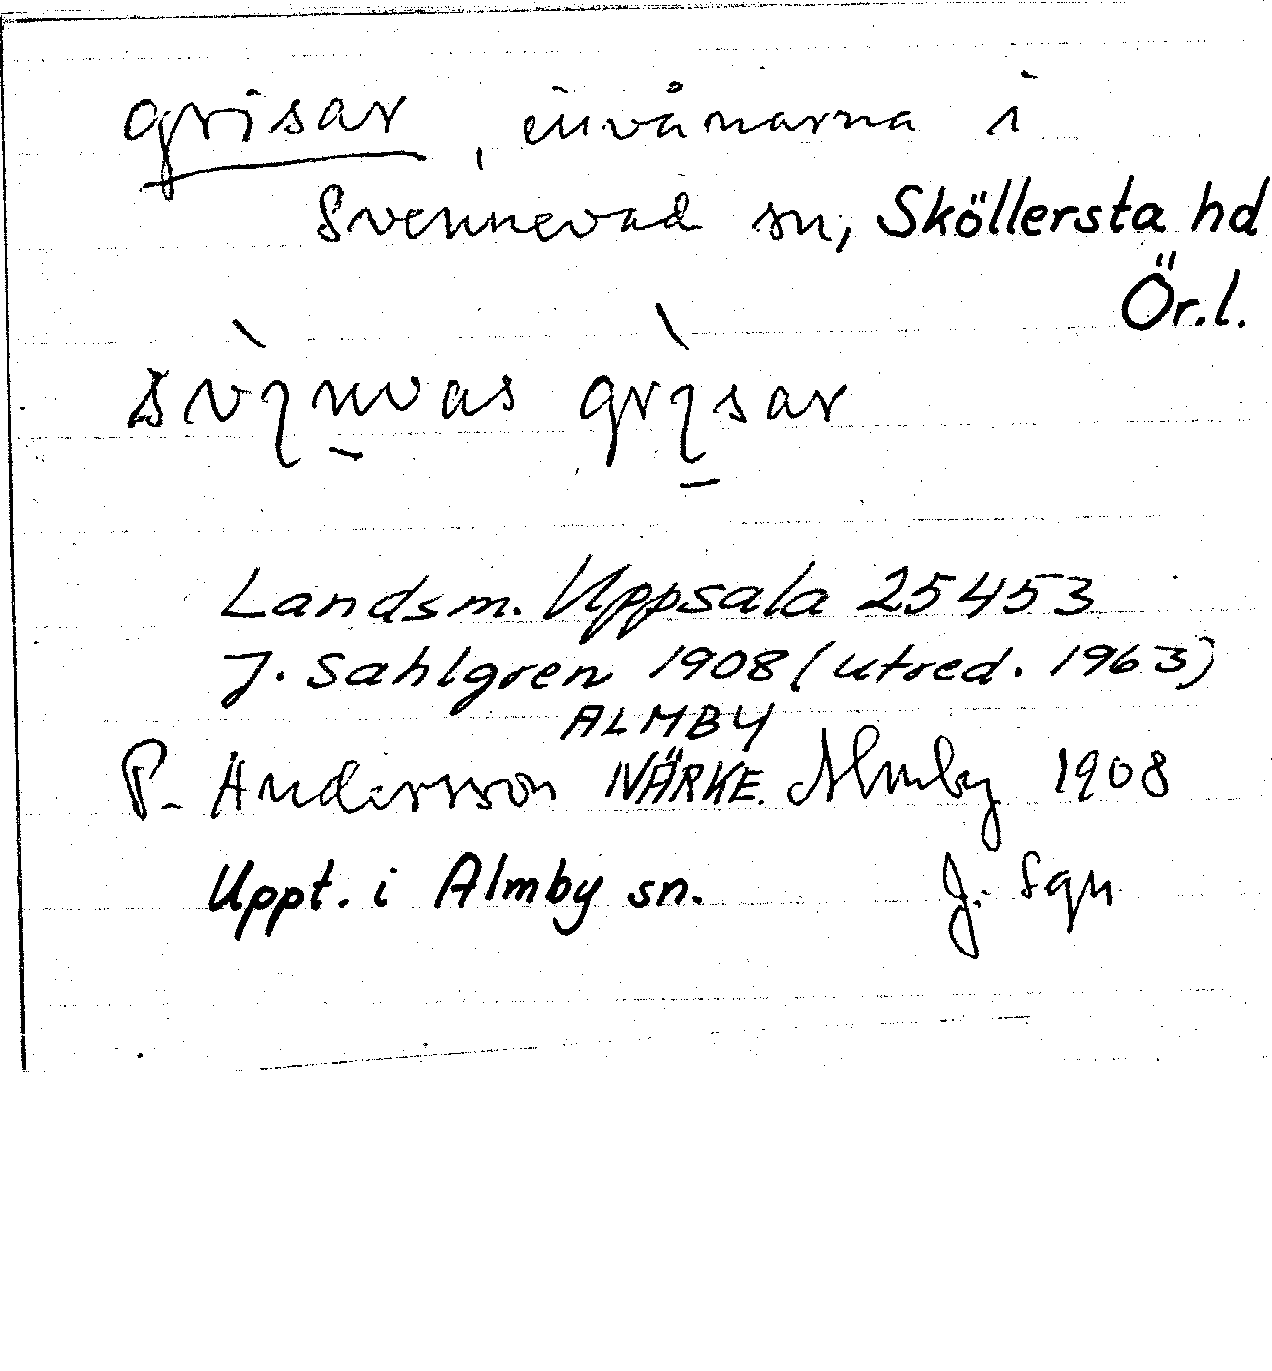 grisar, invånarna i
Svennevad sn, Sköllersta hd
Ör.l.
grisar
Landsm. Uppsala 25453
J. Sahlgren 1908 (utred. 1963)
ALMBY
P. Andersson NÄRKE. Almby 1908
Uppt. i Almby sn. J. Sgn